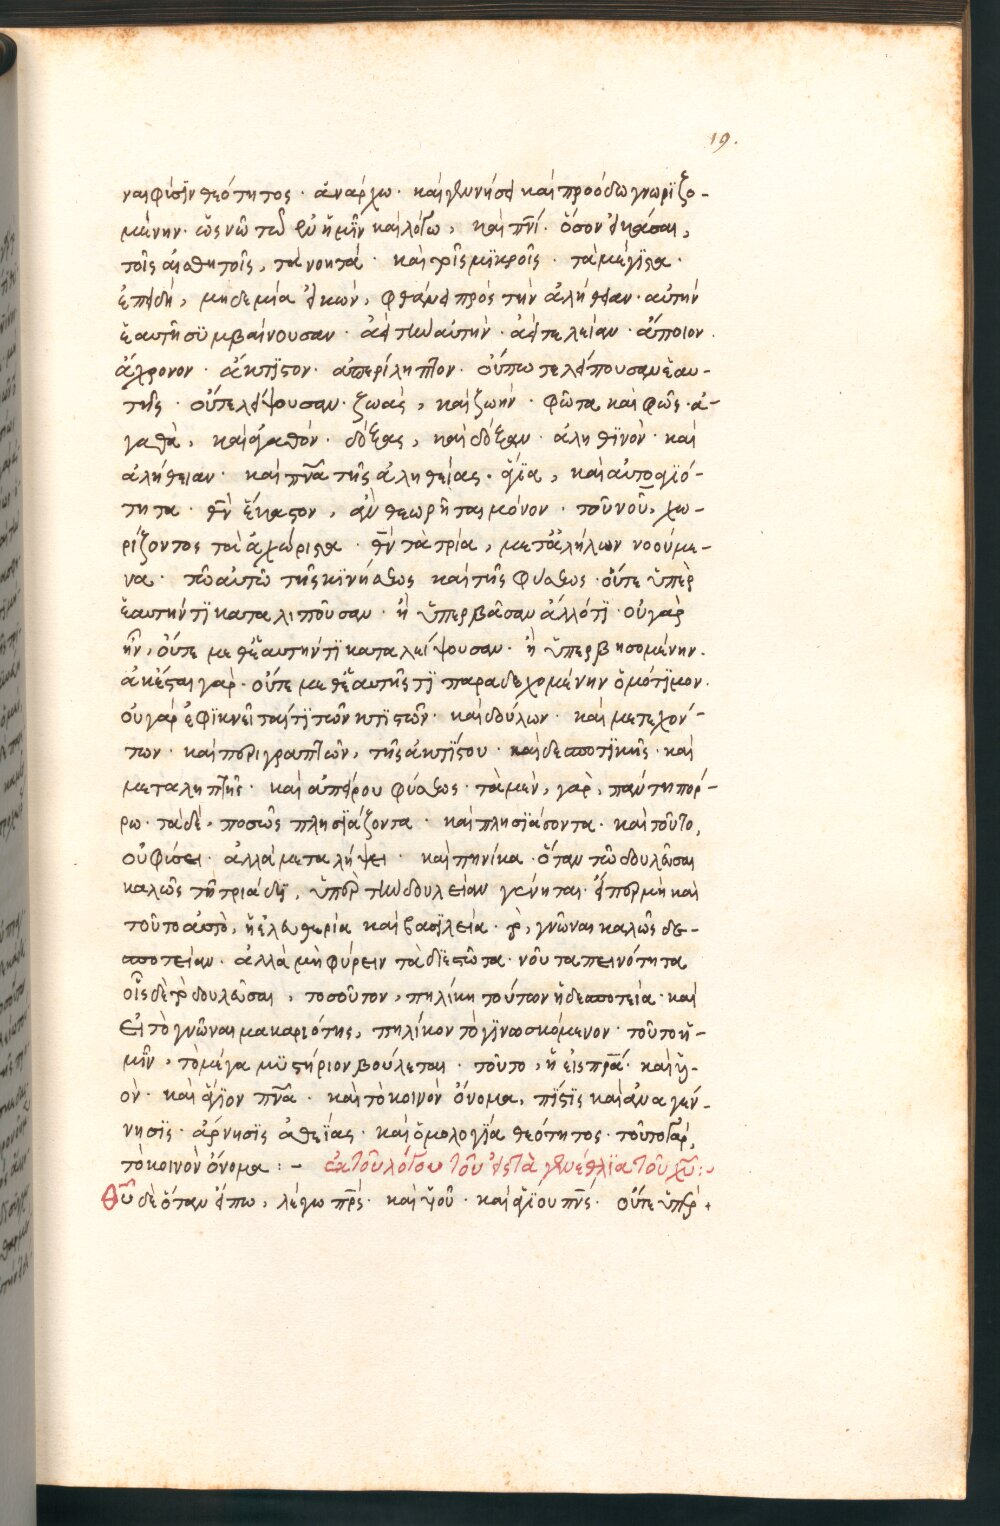 19.
ναι φύσϊν θεότητος · ἀνάρχω · καὶ γεννήσει καὶ προόδω γνωριζο-
μένην · ὡς νῶ τῶ ἐν ἡμῖν καὶ λόγω, καὶ πνί · ὅσον εἰκάσαι,
τοῖς αἰσθητοῖς, τὰ νοητά · καὶ τοῖς μϊκροῖς · τὰ μέγϊστα ·
ἐπειδὴ, μηδεμία εἰκὼν, φθάνει πρὸς τὴν ἀλήθειαν · αὐτὴν
ἑαυτῆ συμβαίνουσαν · ἀεὶ τὴν αὐτὴν · ἀεὶ τελείαν · ἄποιον ·
ἄχρονον · ἄκτϊστον · ἀπερίληπτον · οὔπω τε λείπουσαν ἑαυ-
τῆς · οὔτε λείψουσαν · ζωὰς, καὶ ζωὴν · φῶτα καὶ φῶς · ἀ-
γαθὰ, καὶ ἀγαθὸν · δόξας, καὶ δόξαν · ἀληθϊνὸν · καὶ
ἀλήθειαν · καὶ πνα τῆς ἀληθείας · ἅγϊα, καὶ αὐτοαγϊό-
τητα · θν ἕκαστον, ἂν θεωρῆται μόνον · τοῦ νοῦ, χω-
ρίζοντος τὰ ἀχώριστα · θν τὰ τρία, μετ᾽ ἀλήλων νοούμε-
να · τῶ αὐτῶ τῆς κϊνήσεως καὶ τῆς φύσεως · οὔτε ὑπὲρ
ἑαυτήν τϊ καταλιποῦσαν · ἢ ὑπερβᾶσαν ἄλλό τϊ · οὐ γὰρ
ἦν, οὔτε μεθ᾽ ἑαυτήν τϊ καταλείψουσαν · ἢ ὑπερβησομένην ·
οὔτε μεθ᾽ ἑαυτῆς τϊ παραδεχομένην ὁμότϊμον ·
οὐ γὰρ ἐφϊκνεῖταί τϊ τῶν κτϊστῶν · καὶ δούλων · καὶ μετεχόν-
των · καὶ περιγραπτῶν, τῆς ἀκτίστου · καὶ δεσποτϊκῆς · καὶ
μεταληπτῆς · καὶ ἀπείρου φύσεως · τὰ μὲν, γὰρ, πάντη πόρ-
ρω · τὰ δὲ, ποσῶς πλησϊάζοντα · καὶ πλησϊάσοντα · καὶ τοῦτο,
οὐ φύσει · ἀλλὰ μεταλήψει · καὶ πηνίκα · ὅταν τῶ δουλεῦσαι
καλῶς τῆ τριάδϊ, ὑπὲρ τὴν δουλείαν γένηται · εἴπερ μὴ καὶ
τοῦτο αὐτὸ, ἡ ἐλευθερία καὶ βασϊλεία · τὸ, γνῶναι καλῶς δε-
σποτείαν · ἀλλὰ μὴ φύρειν τὰ διεστῶτα · νοῦ ταπεινότητα
οἷς δὲ τὸ δουλεῦσαι, τοσοῦτον, πηλίκη τούτων ἡ δεσποτεία · καὶ
εἰ τὸ γνῶναι μακαριότης, πηλίκον τὸ γϊνωσκόμενον · τοῦτο ἡ-
μῖν, τὸ μέγα μϋστήριον βούλεται · τοῦτο, ἡ εἰς πρα · καὶ ὑ-
ὸν · καὶ ἅγϊον πνα · καὶ τὸ κοινὸν ὄνομα, πίστϊς καὶ ἀναγέν-
νησϊς · ἄρνησϊς ἀθεΐας · καὶ ὁμολογΐα θεότητος · τοῦτο γὰρ,
τὸ κοινὸν ὄνομα : – ἐκ τοῦ λόγου τοῦ εἰς τὰ γενέθλια τοῦ χυ :
Θυ δὲ ὅταν εἴπω, λέγω πρς · καὶ ὑοῦ · καὶ ἁγΐου πνς · οὔτε ὑπὲρ